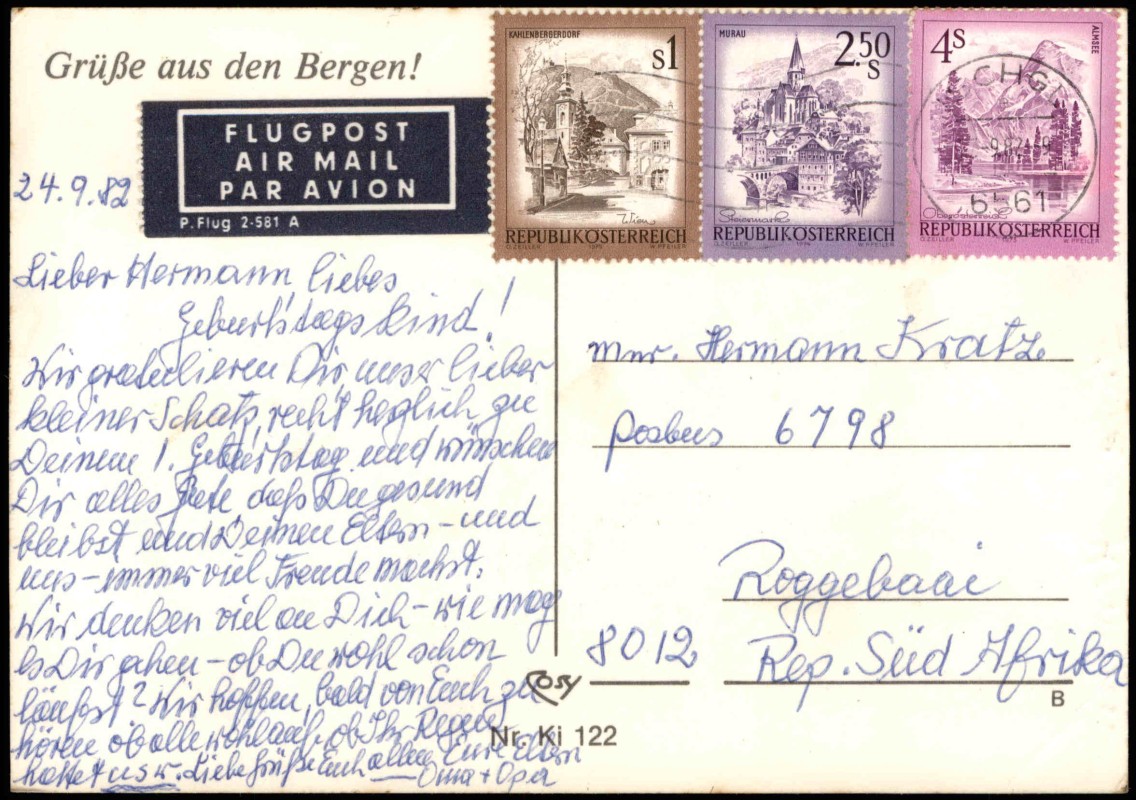 Grüße aus den Bergen!
FLUGPOST
AIR MAIL
PAR AVION
P. Flug 2-581 A
KAHLENBERGERDORF
S1
Wien
REPUBLIK ÖSTERREICH
O. ZEILLER 1975 W. PFEILER
MURAU
2.50 S
Steiermark
REPUBLIK ÖSTERREICH
O. ZEILLER 1974 W. PFEILER
4S
ALMSEE
Oberösterreich
REPUBLIK ÖSTERREICH
O. ZEILLER 1973 W. PFEILER
6561
24.9.82
Lieber Hermann, liebes
Geburtstagskind!
Wir gratulieren Dir, unser lieber
kleiner Schatz, recht herzlich zu
Deinem 1. Geburtstag und wünschen
Dir alles Gute, daß Du gesund
bleibst und Deinen Eltern – und
uns – immer viel Freude machst.
Wir denken viel an Dich – wie mag
es Dir gehen – ob Du wohl schon
läufst? Wir hoffen, bald von Euch zu
hören ob alle wohlauf, ob Ihr Regen
hattet usw. Liebe Grüße Euch allen Eure Eltern
Oma + Opa
mnr. Hermann Kratz
posbus 6798
Roggebaai
8012 Rep. Süd Afrika
Cosy
Nr. Ki 122
B